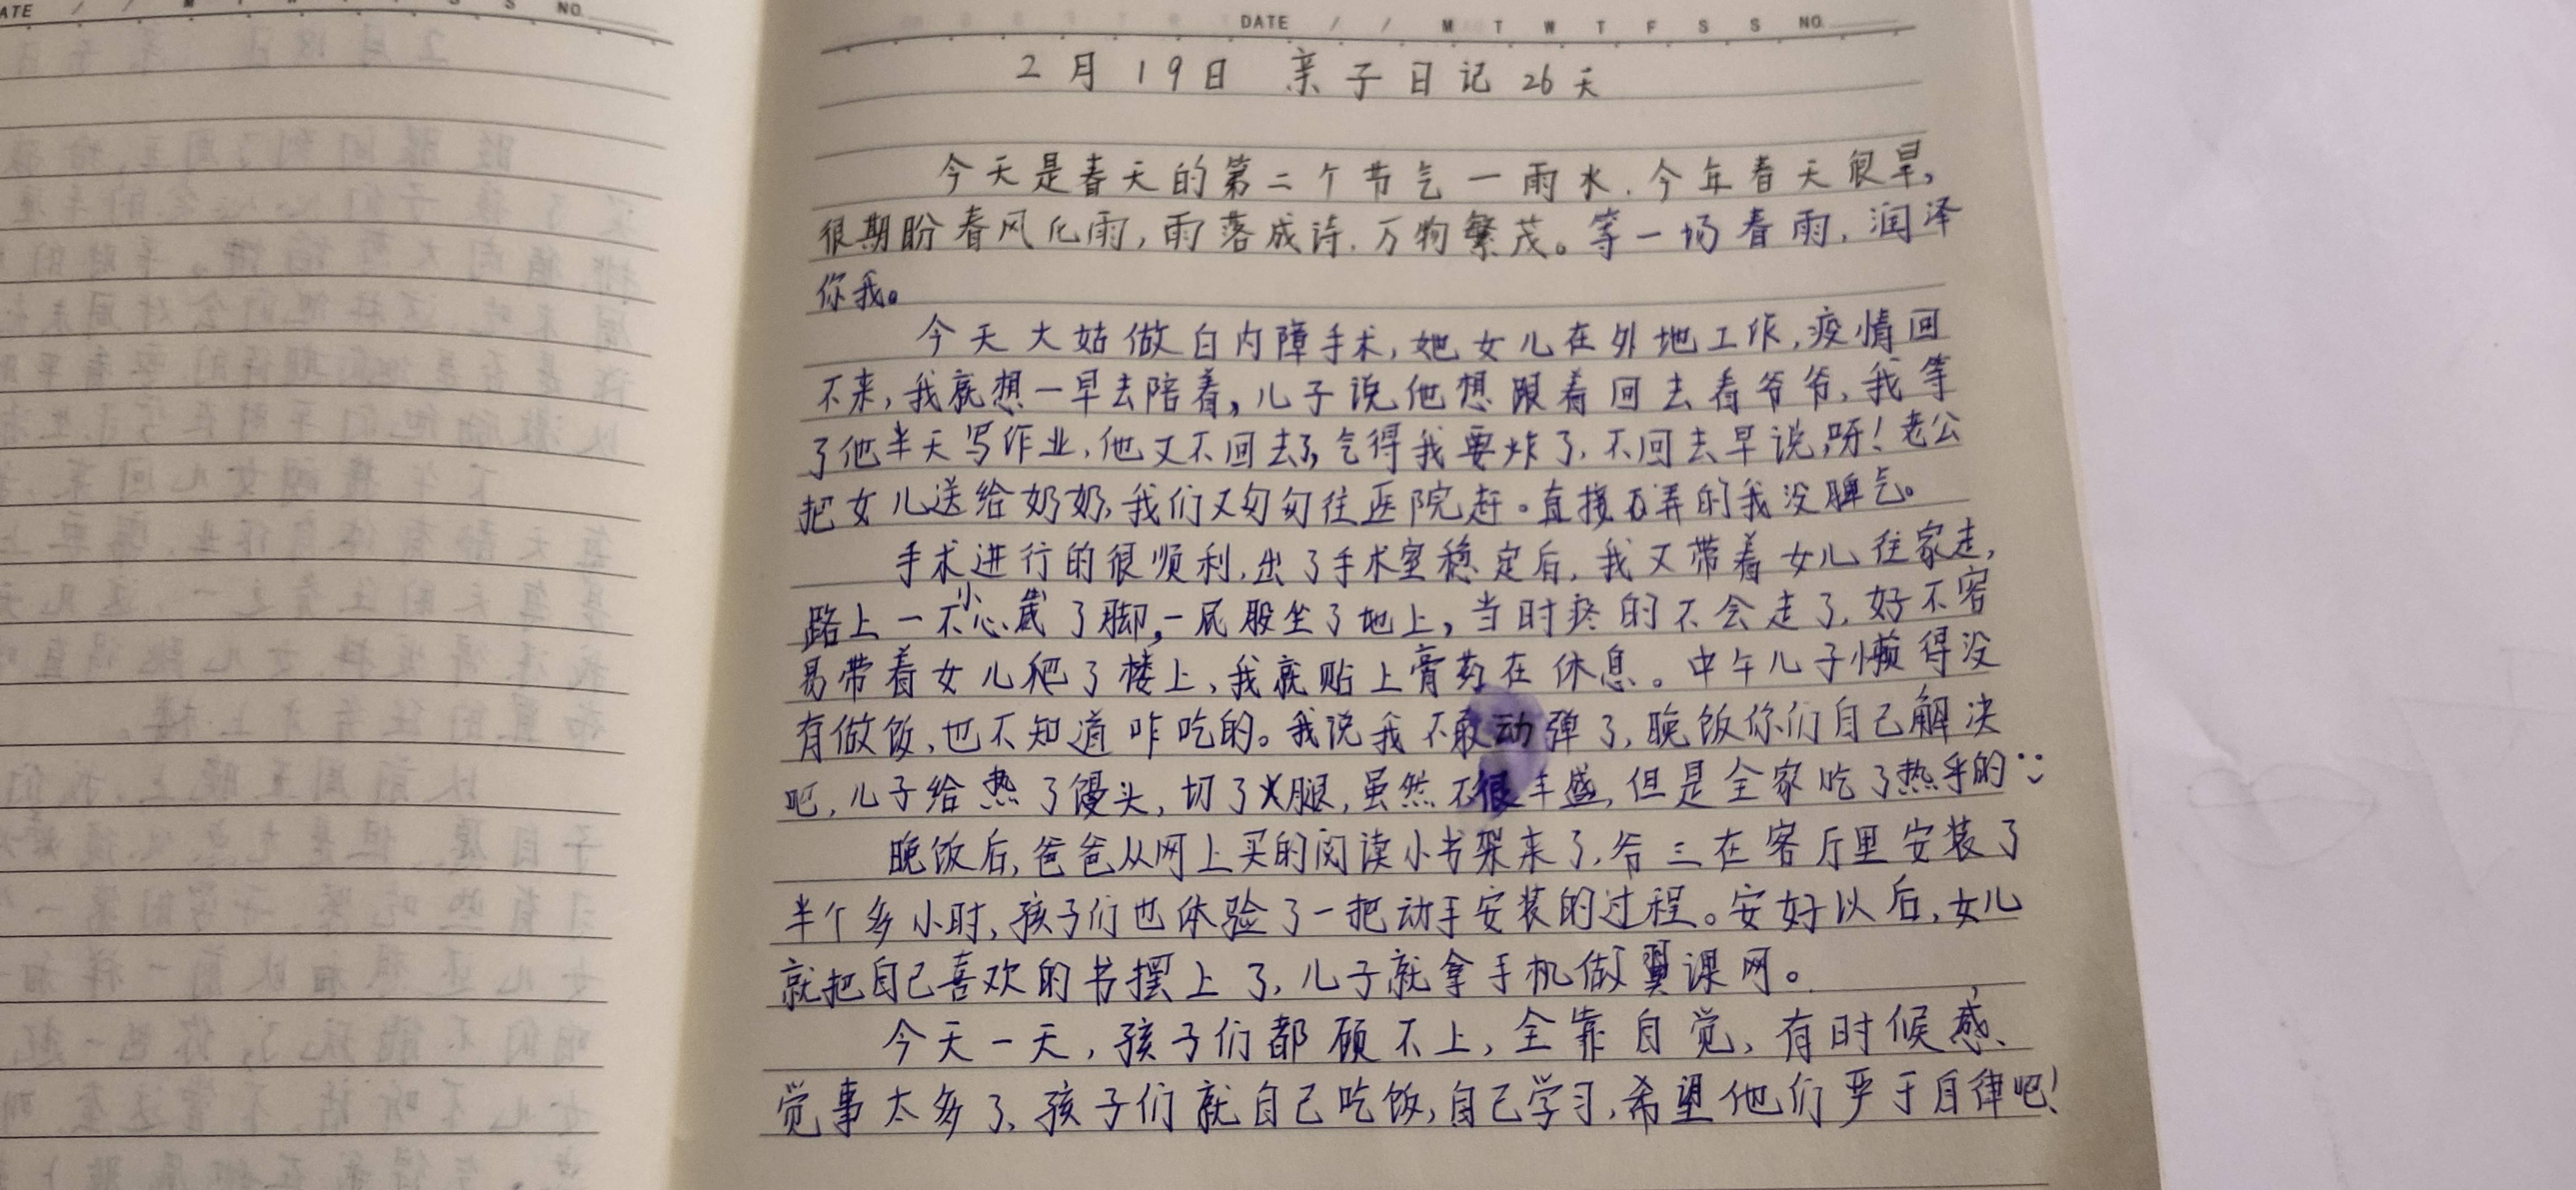 ATE / / M T W T F S S NO.
DATE / / M T W T F S S NO.
2月19日 亲子日记26天
今天是春天的第二个节气一雨水.今年春天很旱,
很期盼春风化雨,雨落成诗.万物繁茂。等一场春雨,润泽
你我。
今天大姑做白内障手术,她女儿在外地工作,疫情回
不来,我就想一早去陪着,儿子说他想跟着回去看爷爷,我等
了他半天写作业,他又不回去了,气得我要炸了,不回去早说呀!老公
把女儿送给奶奶,我们又匆匆往医院赶。直接弄的我没脾气。
手术进行的很顺利,出了手术室稳定后,我又带着女儿往家走,
路上一不小心崴了脚,一屁股坐了地上,当时疼的不会走了,好不容
易带着女儿爬了楼上,我就贴上膏药在休息。中午儿子懒得没
有做饭,也不知道咋吃的。我说我不敢动弹了,晚饭你们自己解决
吧,儿子给热了馒头,切了火腿,虽然不很丰盛,但是全家吃了热乎的
晚饭后,爸爸从网上买的阅读小书架来了,爷三在客厅里安装了
半个多小时,孩子们也体验了一把动手安装的过程。安好以后,女儿
就把自己喜欢的书摆上了,儿子就拿手机做翼课网。
今天一天,孩子们都顾不上,全靠自觉,有时候感
觉事太多了,孩子们就自己吃饭,自己学习,希望他们严于自律吧!